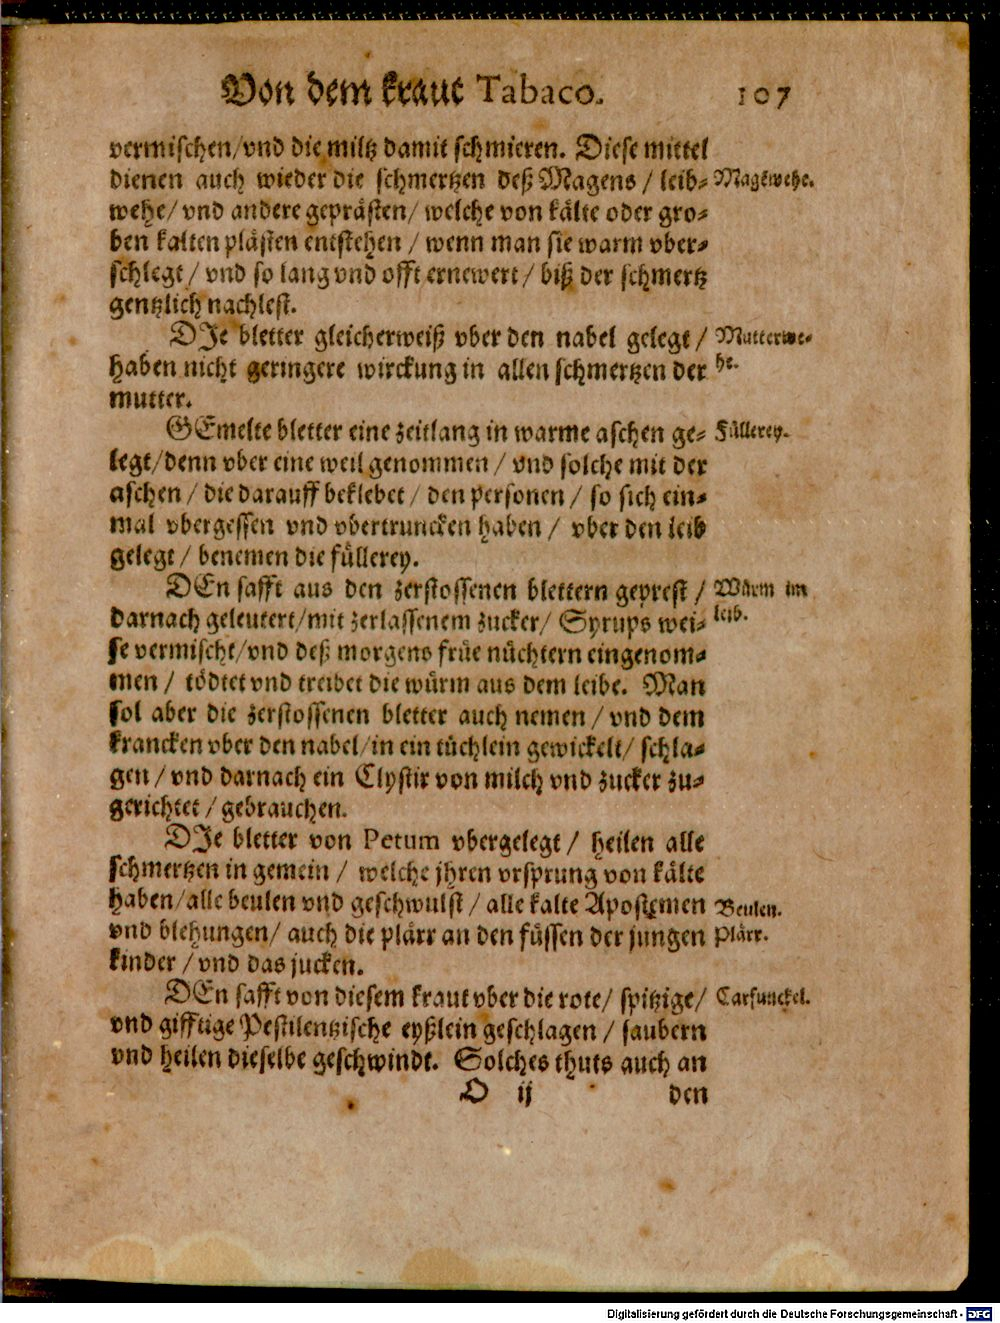 Von dem kraut Tabaco. 107
vermischen/vnd die miltz damit schmieren. Diese mittel
dienen auch wieder die schmertzen deß Magens / leib- Magēwehe.
wehe/ vnd andere geprästen/ welche von kälte oder gro-
ben kalten plästen entstehen / wenn man sie warm vber-
schlegt / vnd so lang vnd offt ernewert / biß der schmertz
gentzlich nachlest.
DJe bletter gleicherweiß vber den nabel gelegt / Mutterwe-
haben nicht geringere wirckung in allen schmertzen der he.
mutter.
GEmelte bletter eine zeitlang in warme aschen ge- Füllerey.
legt/denn vber eine weil genommen / vnd solche mit der
aschen / die darauff beklebet / den personen / so sich ein-
mal vbergessen vnd vbertruncken haben / vber den leib
gelegt / benemen die füllerey.
DEn safft aus den zerstossenen blettern geprest / Würm im
darnach geleutert/mit zerlassenem zucker/ Syrups wei- leib.
se vermischt/vnd deß morgens früe nüchtern eingenom-
men / tödtet vnd treibet die würm aus dem leibe. Man
sol aber die zerstossenen bletter auch nemen / vnd dem
krancken vber den nabel/in ein tüchlein gewickelt/ schla-
gen / vnd darnach ein Clystir von milch vnd zucker zu-
gerichtet / gebrauchen.
DJe bletter von Petum vbergelegt / heilen alle
schmertzen in gemein / welche jhren vrsprung von kälte
haben/alle beulen vnd geschwulst / alle kalte Apostemen Beulen.
vnd blehungen/ auch die plärr an den füssen der jungen Plärr.
kinder / vnd das jucken.
DEn safft von diesem kraut vber die rote/ spitzige/ Carfunckel.
vnd gifftige Pestilentzische eyßlein geschlagen / saubern
vnd heilen dieselbe geschwindt. Solches thuts auch an
O ij den
Digitalisierung gefördert durch die Deutsche Forschungsgemeinschaft - DFG